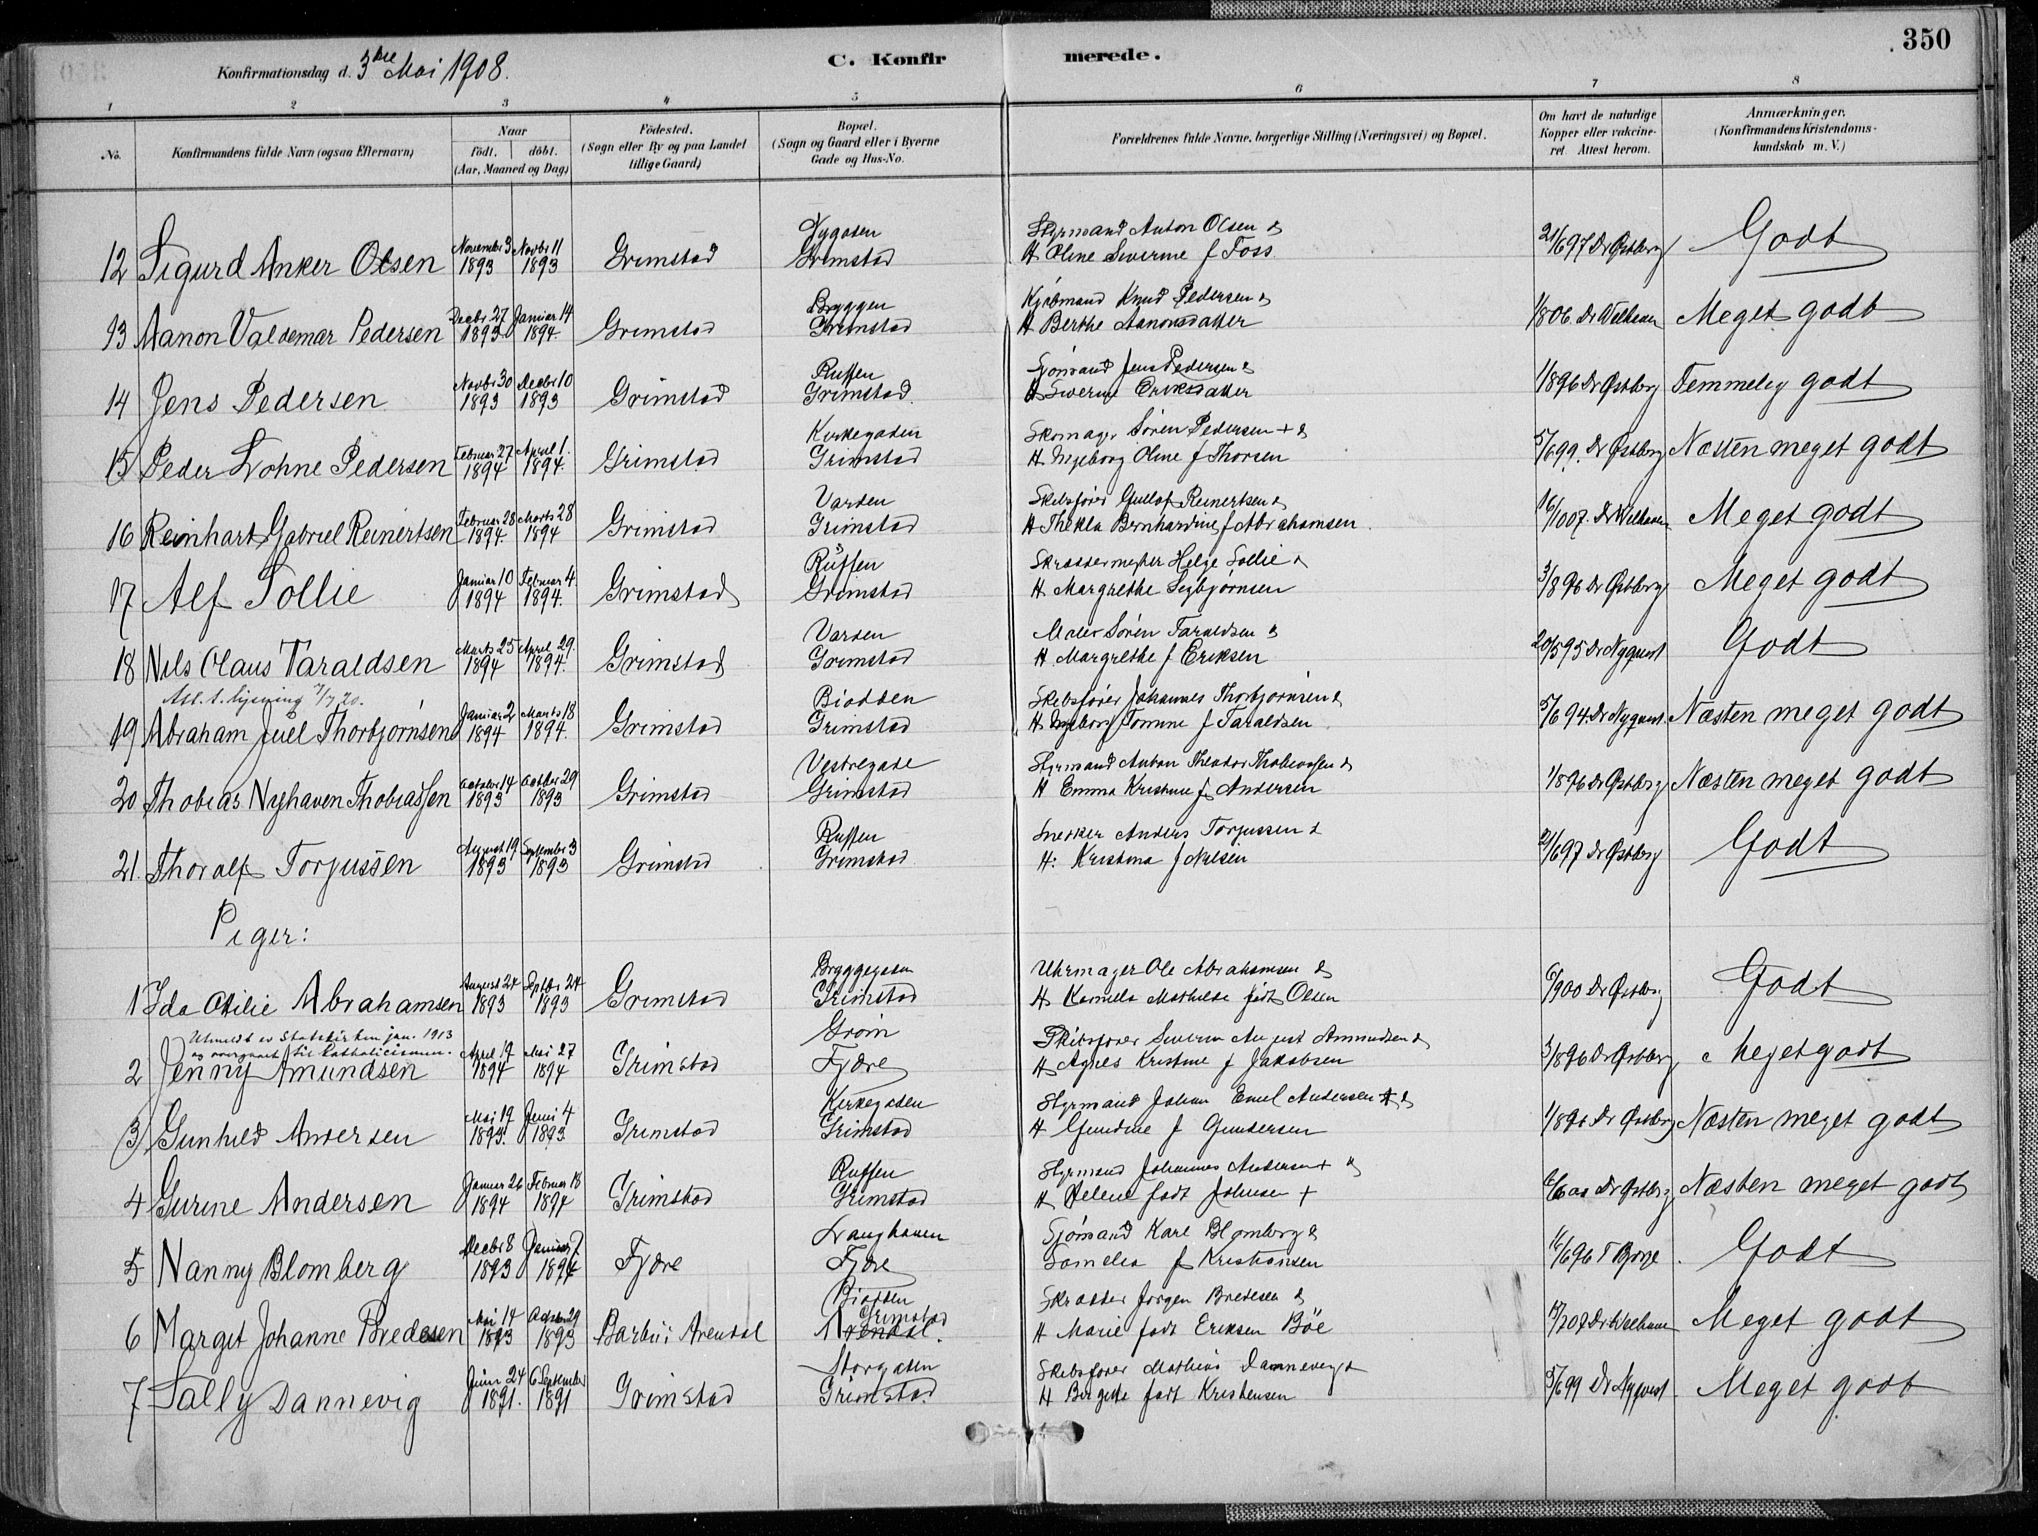 350
Konfirmationsdag d. 3die Mai 1908.
C. Konfirmerede.
1 2 3 4 5 6 7 8
No.
Konfirmandens fulde Navn (ogsaa Efternavn)
Naar
født. døbt.
(Aar, Maaned og Dag)
Fødested.
(Sogn eller By og paa Landet
tillige Gaard)
Bopæl.
(Sogn og Gaard eller i Byerne
Gade og Hus-No.
Forældrenes fulde Navne, borgerlige Stilling (Næringsvei) og Bopæl.
Om havt de naturlige
Kopper eller vakcine-
ret. Attest herom.
Anmærkninger.
(Konfirmandens Kristendoms-
kundskab m. V.)
November 3 Novbr 11 Styrmand Anton Olsen &
12 Sigurd Anker Olsen 1893 1893 Grimstad Grimstad H Oline Severine f Foss 21/6 97 Dr Østberg Godt
Decbr 27 Januar 14 Bryggen Kjøbmand Knud Pedersen &
13 Aanon Valdemar Pedersen 1893 1894 Grimstad Grimstad H Berthe Aanonsdatter 1/8 06 Dr Welhaven Meget godt
Novbr 30 Decbr 10 Ruffen Sjømand Jens Pedersen &
14 Jens Pedersen 1893 1893 Grimstad Grimstad H Severine Eriksdatter 1/8 96 Dr Østberg Temmelig godt
Februar 27 April 1 Kirkegaden Skomager Søren Pedersen + &
15 Peder Lohne Pedersen 1894 1894 Grimstad Grimstad H Ingeborg Oline f Thorsen 5/6 99. Dr Østberg Næsten meget godt
Februar 28 Marts 28 Varden Skibsfører Gullof Reinertsen &
16 Reinhart Gabriel Reinertsen 1894 1894 Grimstad Grimstad H Thekla Bernhardine f Abrahamsen 16/10 07. Dr Welhaven Meget godt
Januar 10 Februar 4 Ruffen Skræddermester Helge Sollie &
17 Alf Sollie 1894 1894 Grimstad Grimstad H Margrethe Seybjørnsen 3/8 96 Dr Østberg Meget godt
Marts 25 April 29 Varden Maler Søren Taraldsen &
18 Nils Claus Taraldsen 1894 1894 Grimstad Grimstad H Margrethe f Eriksen 20/5 95 Dr Nyquist Godt
Att. t. lysning 7/7 20.
Januar 2 Marts 18 Biodden Skibsfører Johannes Thorbjørnsen &
19 Abraham Juel Thorbjørnsen 1894 1894 Grimstad Grimstad H Ingeborg Tomine f Taraldsen 5/6 94. Dr Nyquist Næsten meget godt
October 14 October 29 Vestregade Styrmand Anton Theodor Thobiassen &
20 Thobias Nyhaven Thobiassen 1893 1893 Grimstad Grimstad H Emma Kristine f Andersen 1/8 96 Dr Østberg Næsten meget godt
August 19 September 3 Ruffen Snedker Anders Torjussen &
21. Thoralf Torjussen 1893 1893 Grimstad Grimstad H: Kristina f Nilsen 21/6 97 Dr Østberg Godt
Piger:
August 24 Septbr 24 Bryggegaden Uhrmager Ole Abrahamsen &
1 Ida Otilie Abrahamsen 1893 1893 Grimstad Grimstad H Kamilla Mathilde født Olsen 6/9 00 Dr Østberg Godt
Utmeldt av Statskirken jan. 1913
og overgaaet til Katholicismen.
April 17 Mai 27 Grøm Skibsfører Severin August Ammundsen &
2 Jenny Amundsen 1894 1894 Grimstad Fjære H Agnes Kristine f Jakobsen 3/8 96 Dr Østberg Meget godt
Mai 17 Juni 4 Kirkegaden Styrmand Johan Emil Andersen + &
3 Gunhild Andersen 1893. 1893 Grimstad Grimstad H Gundine f Gundersen Dr Østberg Næsten meget godt
Januar 26 Februar 18 Ruffen Styrmand Johannes Andersen + &
4 Gurine Andersen 1894 1894 Grimstad Grimstad H Helene født Johnsen + Dr Østberg Næsten meget godt
Decbr 8 Januar 7 Langhaven Sjømand Karl Blomberg &
5 Nanny Blomberg 1893 1894 Fjære Fjære f Kristiansen Godt
Mai 14 29 Biodden Skrædder Jørgen Bredesen &
Grimstad
6 Marget Johanne Bredesen 1893 1893 Barbu i Arendal Arendal. H Marie født Eriksen Bøe Dr Welhaven Meget godt
Juni 24 6 September Storgaden Skibsfører Mathias Dannevig &
7 Sally Dannevig 1891. 1891 Grimstad Grimstad H Birgitte født Kristensen 5/6 99 Dr Nyquist Meget godt